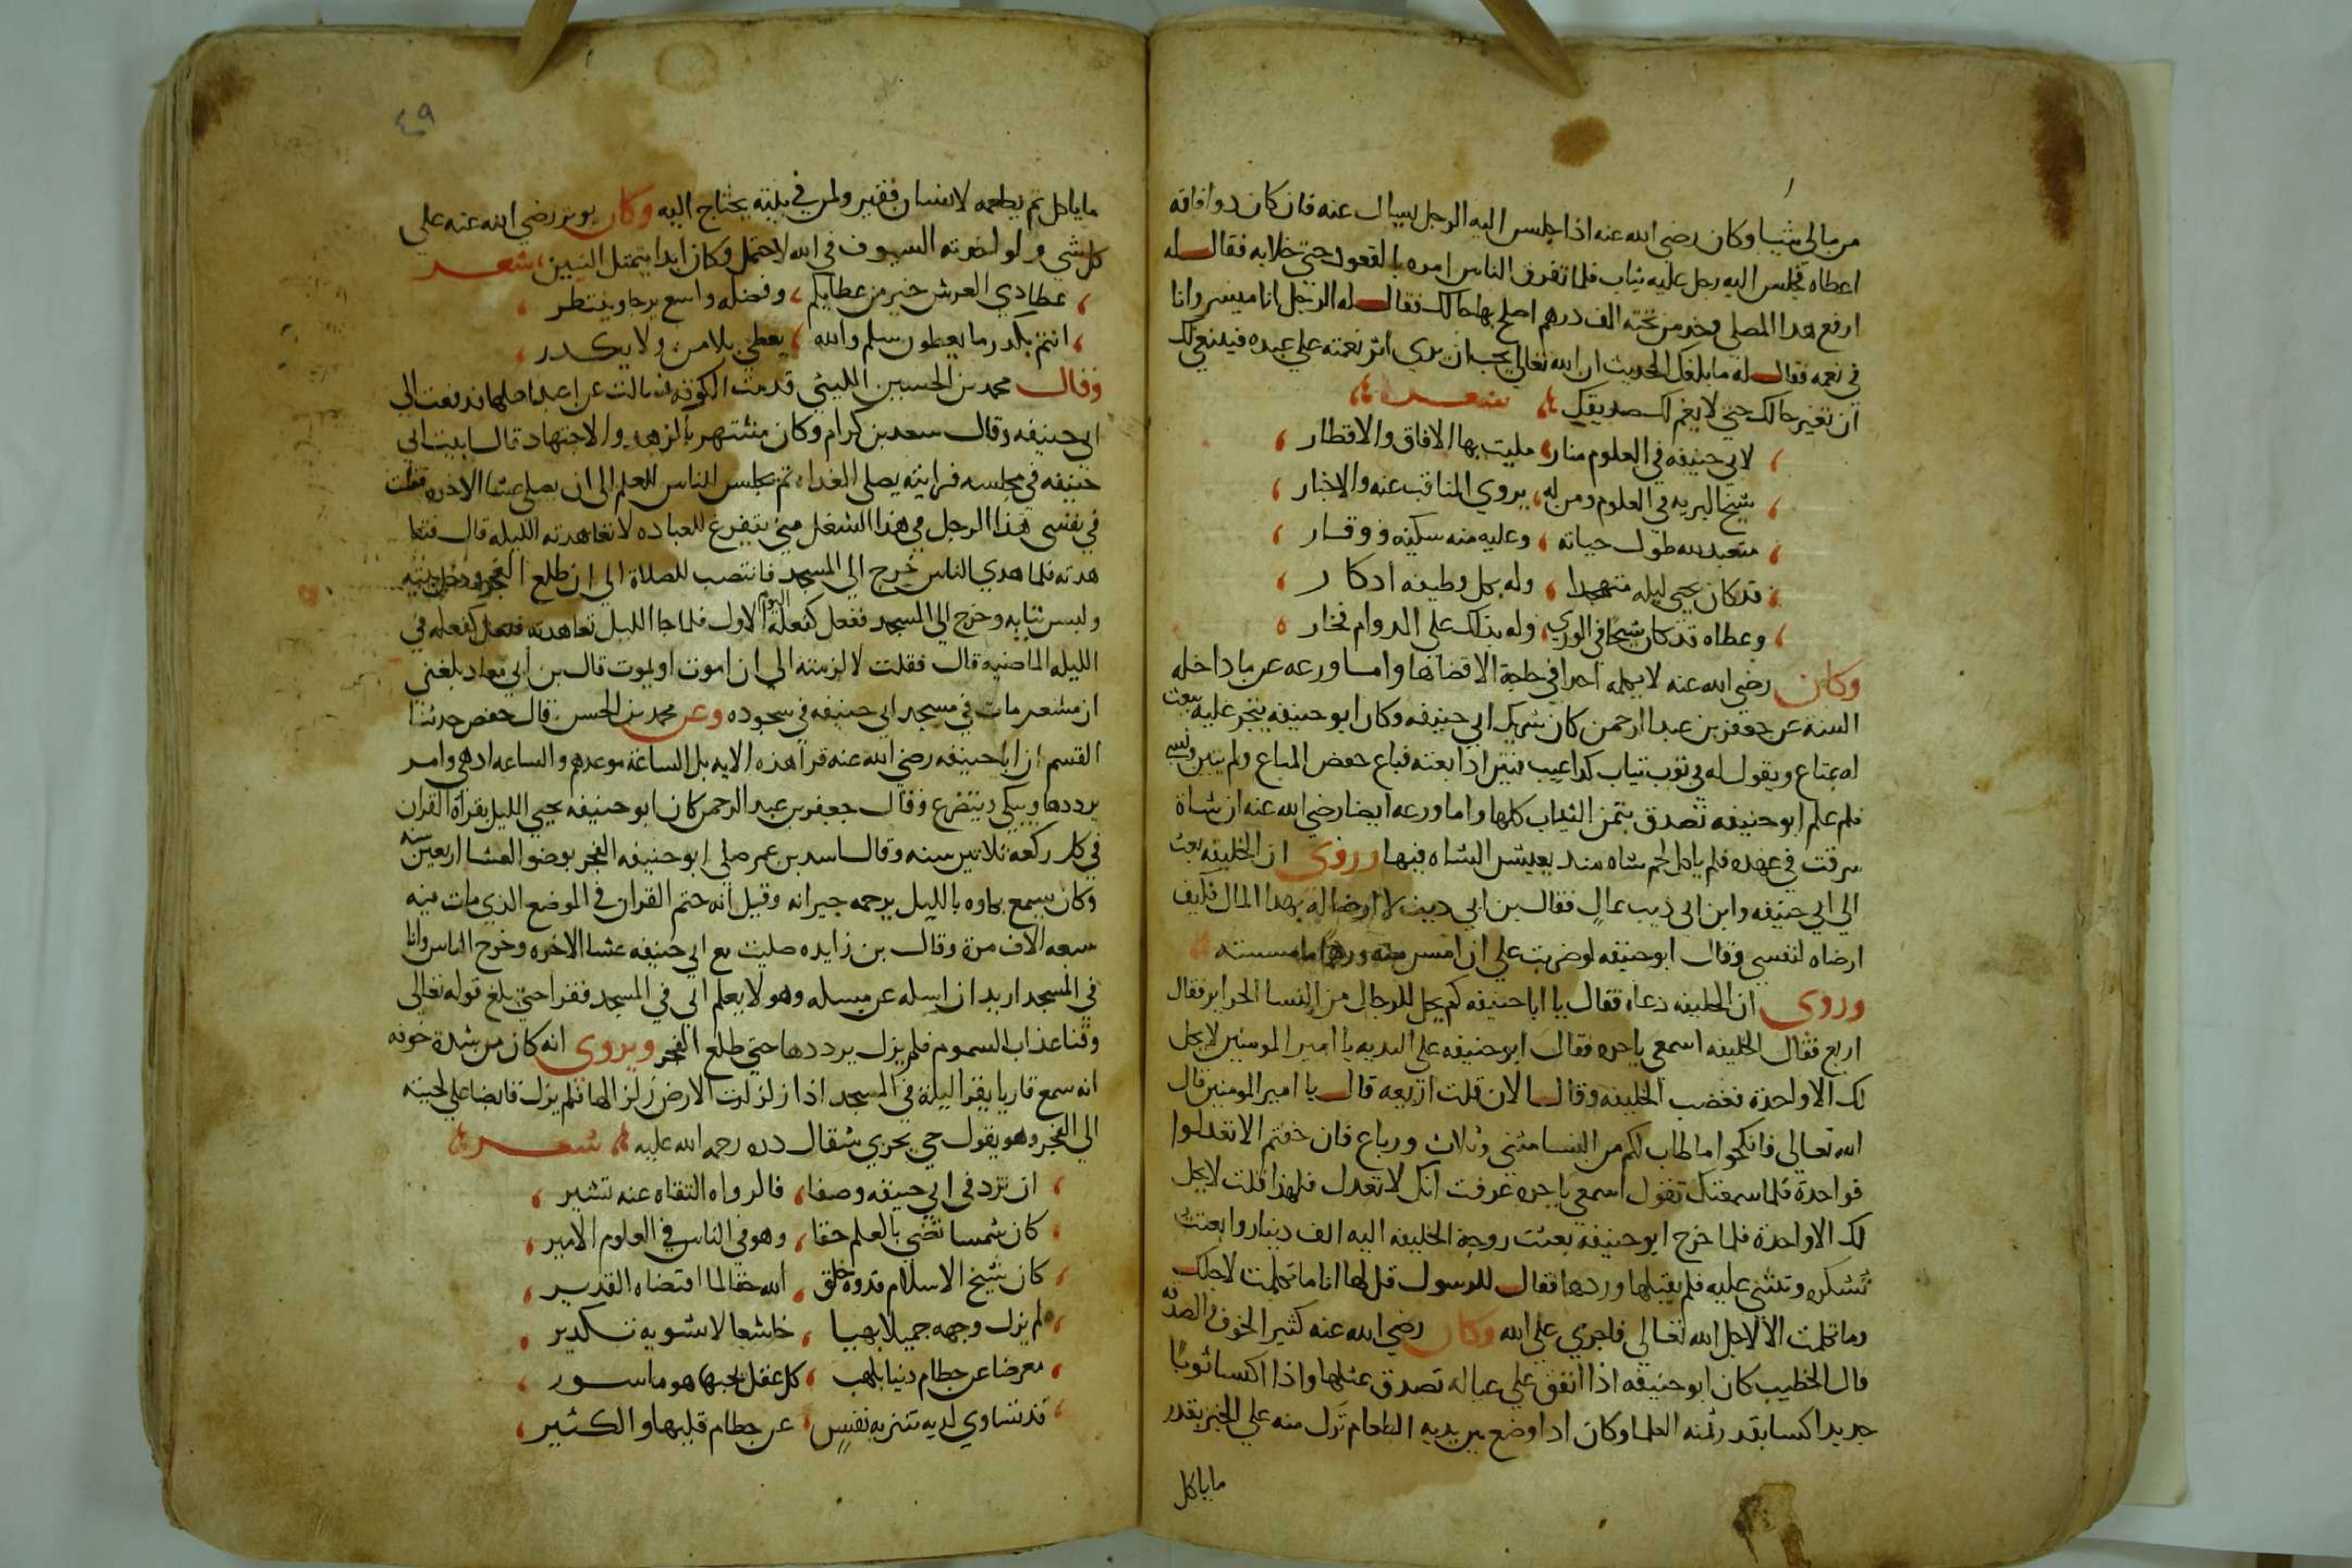 من مالي شيا وكان رضي الله عنه اذا جلس اليه الرجل يسال عنه فان كان ذوا فاقه
اعطاه فجلس اليه رجل عليه ثياب فلما تفرق الناس امره بالقعود حتي خلا به فقال له
ارفع هدا المصلي وخد من تحته الف درهم اصلح بها حالك فقال له الرجل انا ميسر وانا
في نعمه فقال له ما بلغك الحديث ان الله تعالي يحب ان يري اثر نعمته علي عبده فينبغي لك
ان تغير حالك حتي لا يغم لك صديقك شعر
لابي حنيفه في العلوم منار مليت بها الافاق والاقطار
شيخ البريه في العلوم ومن له يروي المناقب عنه والاخبار
متعبد لله طول حياته وعليه منه سكينه ووقار
قد كان يحيي ليله متهجدا وله بكل وظيفه ادكار
وعطاه قد كان شيحا في الوري وله بذلك علي الدوام فخار
وكان رضي الله عنه لا يكلمه احدا في حاجة الا قضاها واما ورعه عن ما داخله
السنه عن جعفر بن عبد الرحمن كان شريك ابي حنيفه وكان ابو حنيفه يتجر عليه يبعث
له بمتاع ويقول له في ثوب ثياب كدا عيب فبين اذا بعته فباع حفص المتاع ولم يبين ونسي
فلم علم ابو حنيفه تصدق بثمن الثياب كلها واما ورعه ايضا رضي الله عنه ان شاة
سرقت في عهده فلم ياكل لحم شاه مند يعيش الشاه فيها وروي ان الخليفه بعث
الي ابي حنيفه وابن ابي ذيب بمال فقال بن ابي ذيب لا ارضا له بهدا المال فكيف
ارضاه لنفسي وقال ابو حنيفه لو ضربت علي ان امس منه درهما ما مسسته
وروي ان الخليفه دعاه فقال يا ابا حنيفه كم يحل للرجال من النسا الحراير فقال
اربع فقال الخليفه اسمعي يا حره فقال ابو حنيفه علي البديه يا امير المومنين لا يحل
لك الا واحدة فغضب الخليفه وقال الان قلت اربعه قال يا امير المومنين قال
الله تعالي فانكحوا ما طاب لكم من النسا مثني وثلاث ورباع فان خفتم الا تعدلوا
فواحدة فلما سمعتك تقول اسمعي يا حره عرفت انك لا تعدل فلهذا قلت لا يحل
لك الا واحدة فلما خرج ابو حنيفه بعثت زوجة الخليفه اليه الف دينار وابعثت
تشكره وتثني عليه فلم يقبلها وردها فقال للرسول قل لها انا ما تكلمت لاجلك
وما تكلمت الا لاجل الله تعالي فاجري علي الله وكان رضي الله عنه كثير الخوف والصدقه
قال الخطيب كان ابو حنيفه اذا انفق علي عياله تصدق بمثلها واذا اكتسا ثوبا
جديدا اكسا بقدر ثمنه العلما وكان ادا وضع بين يديه الطعام ترك منه علي الخبز بقدر
ما ياكل
٤٩
ما ياكل ثم يطعمه لانسان فقير ولمن في بيته يحتاج اليه وكان يوثر رضي الله عنه علي
كل شي ولو اخذته السيوف في الله لاحتمل وكان ابدا يتمثل البيتين شعر
عطا دي العرش خير من عطايكم وفضله واسع يرجا وينتظر
انتم يكدر ما يعطون سلم والله يعطي بلا من ولا يكدر
وقال محمد بن الحسين الليثي قدمت الكوفه فسالت عن اعبد اهلها فدفعت الي
ابي حنيفه وقال سعد بن كرام وكان مشتهر بالزهد والاجتهاد قال اتيت ابي
حنيفه في مجلسه فرايته يصلي الغداه ثم يجلس للناس للعلم الي ان يصلي عشا الاخره فقلت
في نفسي هذا الرجل في هذا الشغل متي يتفرغ للعباده لاتعاهدنه الليله قال فتعا
هدته فلما هدي الناس خرج الي المسجد فانتصب للصلاة الي ان طلع الفجر ودخل بيته
ولبس ثيابه وخرج الي المسجد ففعل كفعله اليوم الاول فلما جا الليل تعاهدته ففعل كفعله في
الليله الماضيه قال فقلت لالزمنه الي ان اموت او يموت قال بن ابي معاد بلغني
ان مشعر مات في مسجد ابي حنيفه في سجوده وعن محمد بن الحسن قال حفص حدثنا
القسم ان ابا حنيفه رضي الله عنه قرا هذه الايه بل الساعة موعدهم والساعه ادهي وامر
يرددها ويبكي ويتضرع وقال جعفر بن عبد الرحمن كان ابو حنيفه يحيي الليل بقراة القران
في كل ركعه ثلاثين سنه وقال اسد بن عمر صلي ابو حنيفه الفجر بوضو العشا اربعين سنه
وكان يسمع بكاوه بالليل يرحمه جيرانه وقيل انه ختم القران في الموضع الذي مات فيه
سبعه الاف مرة وقال بن زايده صليت مع ابي حنيفه عشا الاخره وخرج الناس وانا
في المسجد اريد ان اسله عن مسله وهو لا يعلم اني في المسجد فقرا حتي بلغ قوله تعالي
وقنا عذاب السموم فلم يزل يرددها حتي طلع الفجر ويروي انه كان من شدة خوفه
انه سمع قاريا يقرا ليلة في المسجد اذا زلزلت الارض زلزالها فلم يزل قابضا علي لحيته
الي الفجر وهو يقول حي يجزي مثقال دره رحمه الله عليه شعر
ان تزد في ابي حنيفه وصفا فالرواه التقاه عنه تشير
كان شمسا تضي بالعلم حقا وهو في الناس في العلوم الامير
كان شيخ الاسلام قدوة خلق الله حقا لما اقتضاه القدير
لم يزل وجهه جميلا بهيا خاشعا لا يشوبه تكدير
معرضا عن حطام دنيا بلهب كل عقل بحبها هو ماسور
قد تساوي لديه تنزيه نفس عن حطام قليلها والكثير